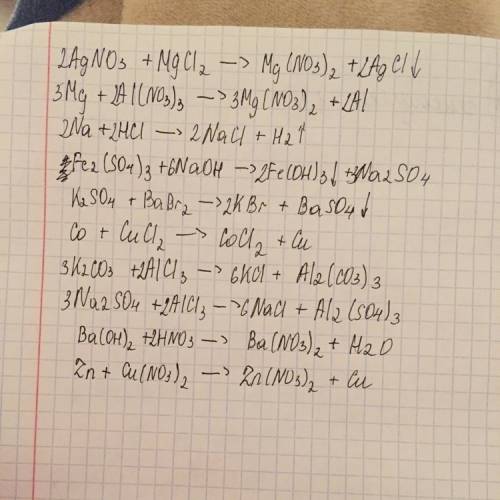 2AgNO3 + MgCl2 —> Mg(NO3)2 + 2AgCl↓
3Mg + 2Al(NO3)3 —> 3Mg(NO3)2 + 2Al
2Na + 2HCl —> 2NaCl + H2↑
Fe2(SO4)3 + 6NaOH —> 2Fe(OH)3↓ + 3Na2SO4
K2SO4 + BaBr2 —> 2KBr + BaSO4↓
Co + CuCl2 —> CoCl2 + Cu
3K2CO3 + 2AlCl3 —> 6KCl + Al2(CO3)3
3Na2SO4 + 2AlCl3 —> 6NaCl + Al2(SO4)3
Ba(OH)2 + 2HNO3 —> Ba(NO3)2 + H2O
Zn + Cu(NO3)2 —> Zn(NO3)2 + Cu